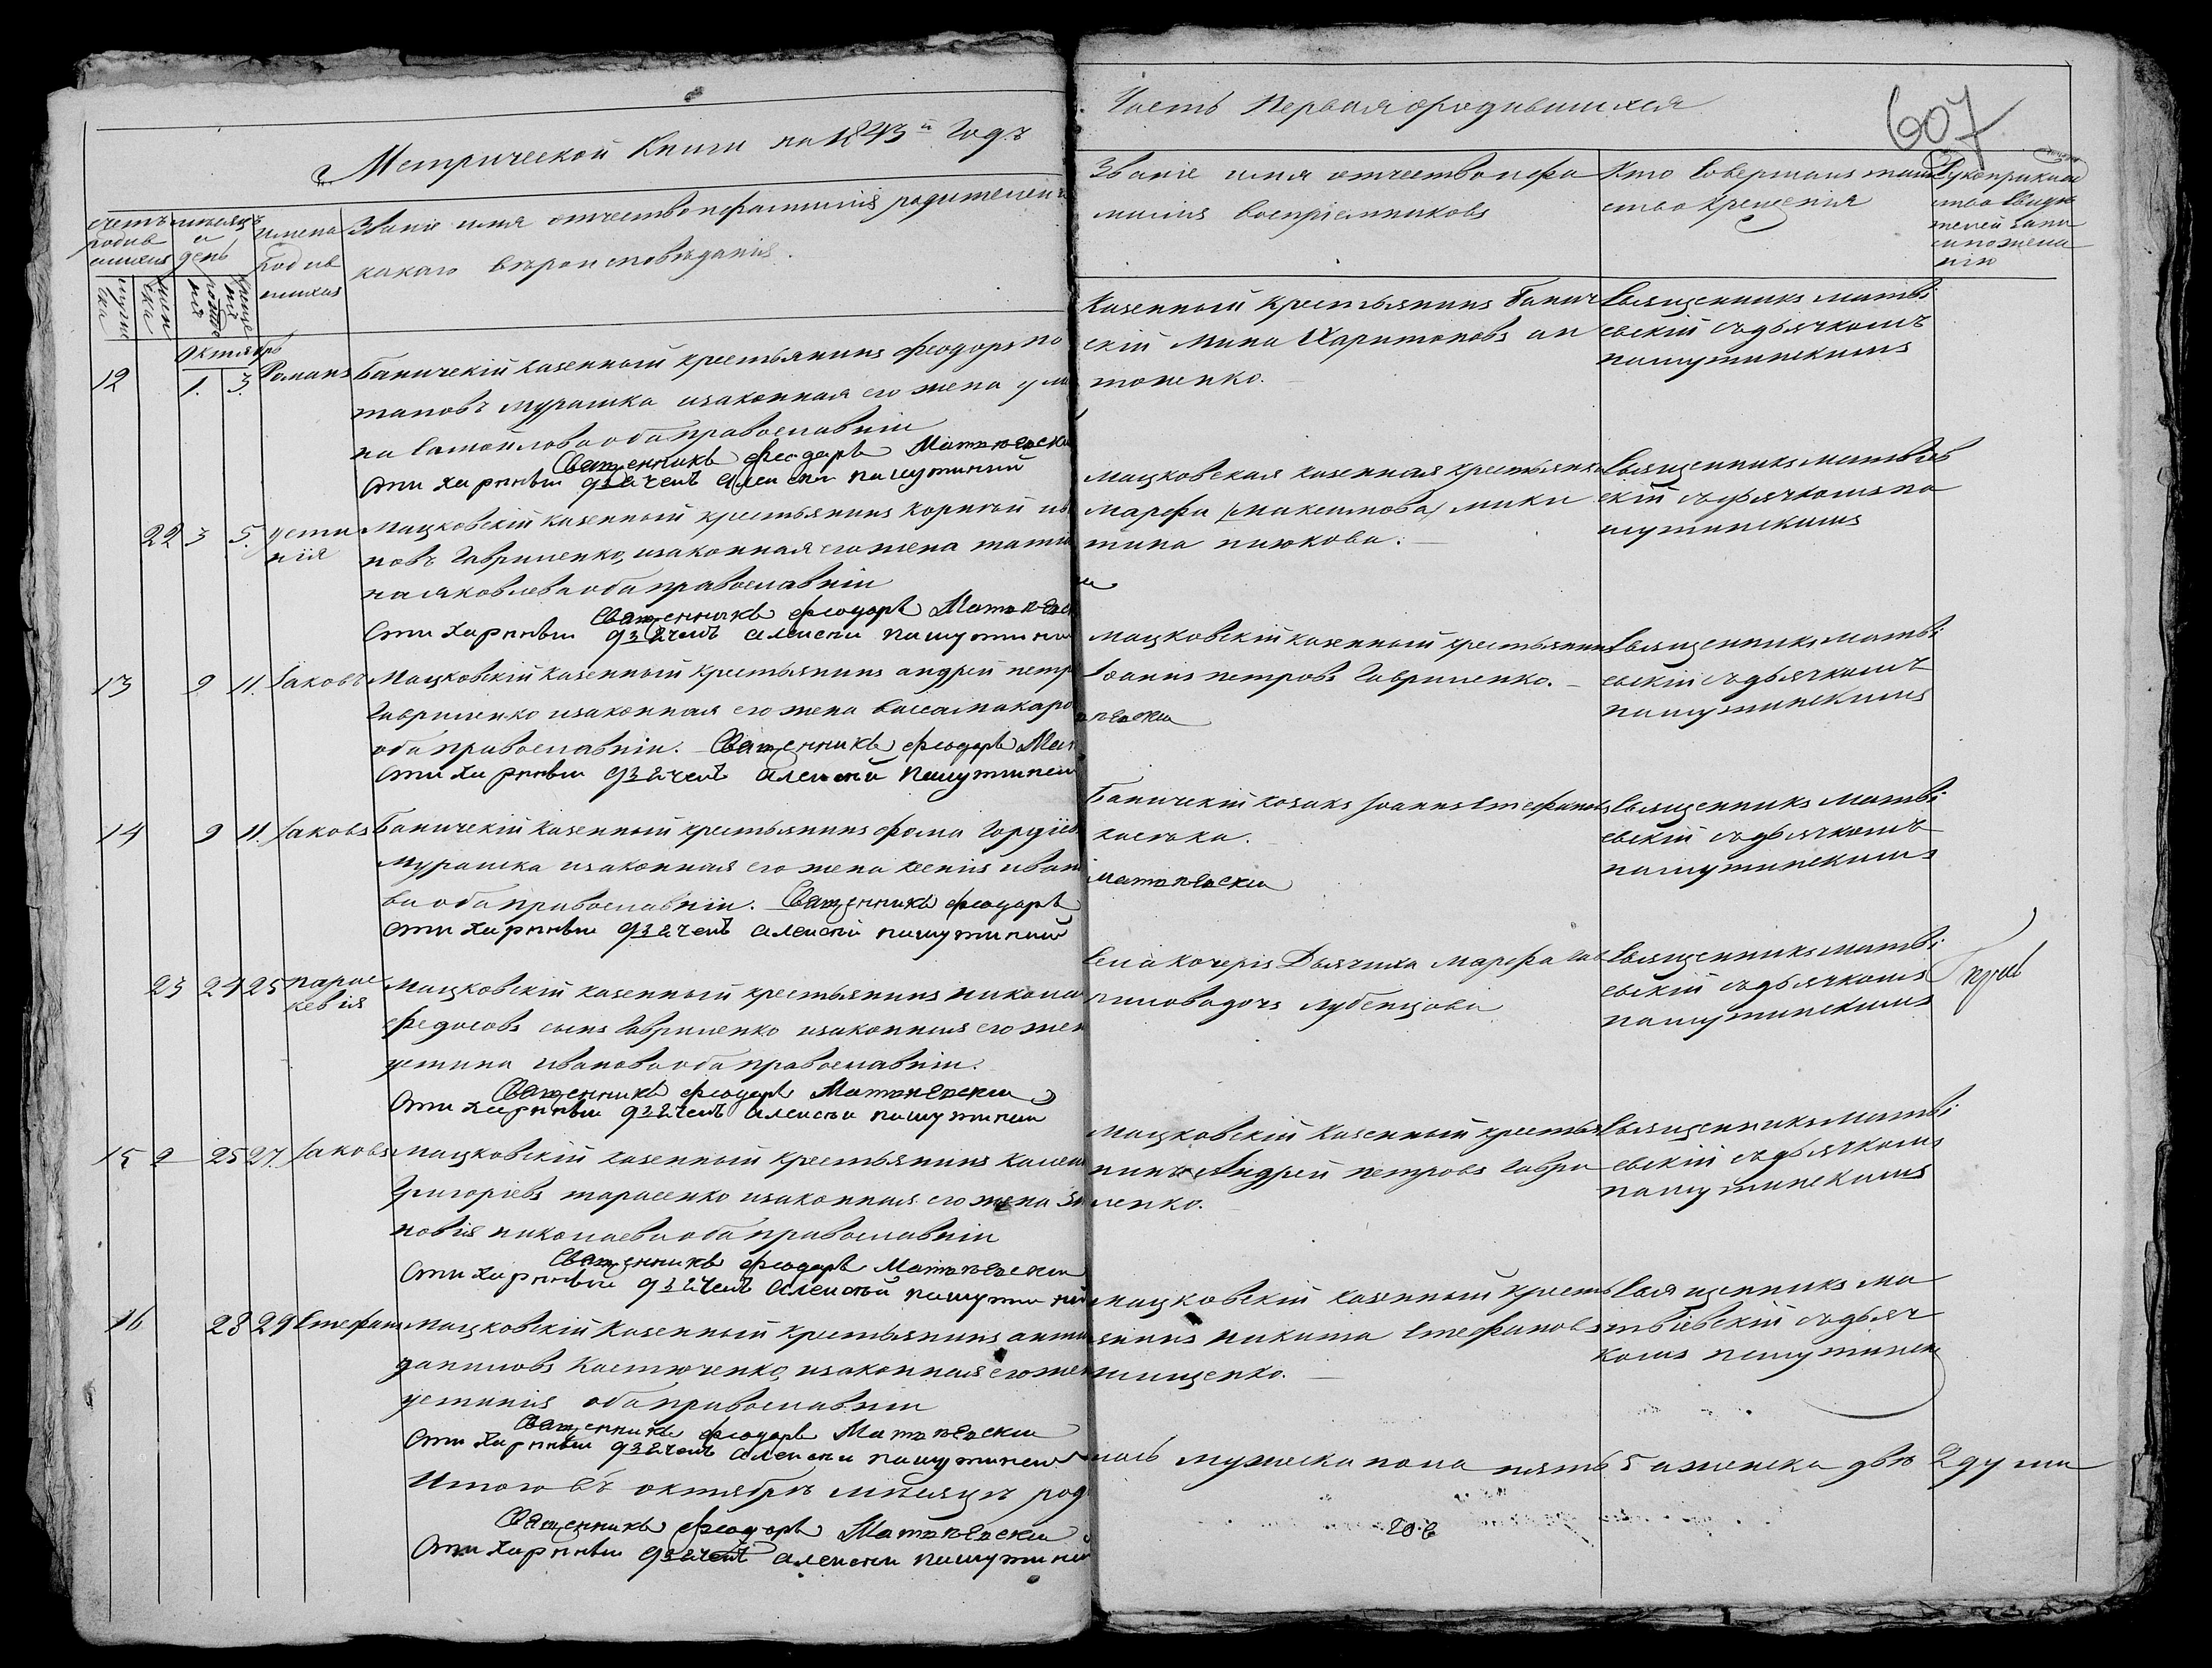 Метрической Книги на 1843й Годъ
Часть Первая ородившихся
607
счетъ родившихся
мѣсяцъ и день
имена родившихся
Званіе имя отчество и фамилія родителей и
какаго вѣроисповѣданія.
Званіе имя отчество и фа
милія воспріемниковъ
Кто совершалъ таин
ство крещенія
Рукоприклад
ство свидѣ
телей записи
по жела
нію
мужеска
женска
рожденія
крещенія
Октябрь
12 1. 3. Романъ
Баничскій казенный крестьянинъ Феодоръ По
таповъ Мурашка изаконная его жена Улья
на Самойлова оба православніи
Священникъ Феодоръ Матвѣевски
Стихарный дьячекъ Алексѣй Пашутинскій
Казенный крестьянинъ Банич
скій Мина Харитоновъ Ан
тоненко.
Священникъ Матвѣ
евскій съдьячкомъ
Пашутинскимъ
22 3 5. Усти
нія
Мацковскій казенный крестьянинъ Корнѣй Ива
новъ Гавриленко, изаконная его жена Татья
на Яковлева оба православніи
Священникъ Феодоръ Матвѣевск
Стихарный дьячекъ Алексѣй Пашутинс
Мацковская казенная крестьянка
Марфа /Максимова/ Мики
тина Пижкова.
Священникъ Матвѣев
скій съдьячкомъ Па
шутинскимъ
13 9 11. Іаковъ
Мацковскій казенный крестьянинъ Андрей Петр
Гавриленко изаконная его жена Васса Макаро
оба православніи. Священникъ Феодоръ Мат
вѣевски
Стихарный дьячекъ Алексѣй Пашутинскі
Мацковскій казенный крестьянинъ
Іоаннъ Петровъ Гавриленко.
Священникъ Матвѣ
евскій съдьячкомъ
Пашутинскимъ
14 9 11. Іаковъ
Баничскій казенный крестьянинъ Фома Гордіев
Мурашка изаконная его жена Ксенія Ивано
ва оба православніи. Священникъ Феодоръ
Матвѣевски
Стихарный дьячекъ Алексѣй Пашутинскій
Баничскій козакъ Іоаннъ Стефановъ
Священникъ Матвѣ
евскій съдьячкомъ
Пашутинскимъ
23 24 25 Парас
кевія
Мацковскій казенный крестьянинъ Никола
Федосовъ сынъ Гавриленко изаконная его жен
Устина Иванова оба православніи.
Священникъ Феодоръ Матвѣевски
Стихарный дьячекъ Алексѣй Пашутинскій
Села Кочерія Дьячиха Марфа Гав
рилова дочь Лубенцова
Священникъ Матвѣ
евскій съдьячкомъ
Пашутинскимъ
15 2 25 27. Іаковъ
Мацковскій казенный крестьянинъ
Григоріевъ Тарасенко изаконная его жена Зи
новія Николаева оба православніи
Священникъ Феодоръ Матвѣевски
Стихарный дьячекъ Алексѣй Пашутинскі
Мацковскій казенный крестья
нинъ Андрей Петровъ Гаври
ленко.
Священникъ Матвѣ
евскій съдьячкомъ
Пашутинскимъ
16 28 29 Стефанъ
Мацковскій казенный крестьянинъ
Даниловъ Костюченко, изаконная его жен
Устинія оба православніи
Священникъ Феодоръ Матвѣевски
Стихарный дьячекъ Алексѣй Пашутинскій
Мацковскій казенный кресть
янинъ Никита Стефановъ
Тищенко.
Священникъ Ма
твѣевскій съдьяч
комъ Пашутинск
Итого въ октябрѣ мѣсяцѣ род
илось мужеска пола пять 5 а женска двѣ 2 души
Священникъ Феодоръ Матвѣевски
Стихарный дьячекъ Алексѣй Пашутинскій